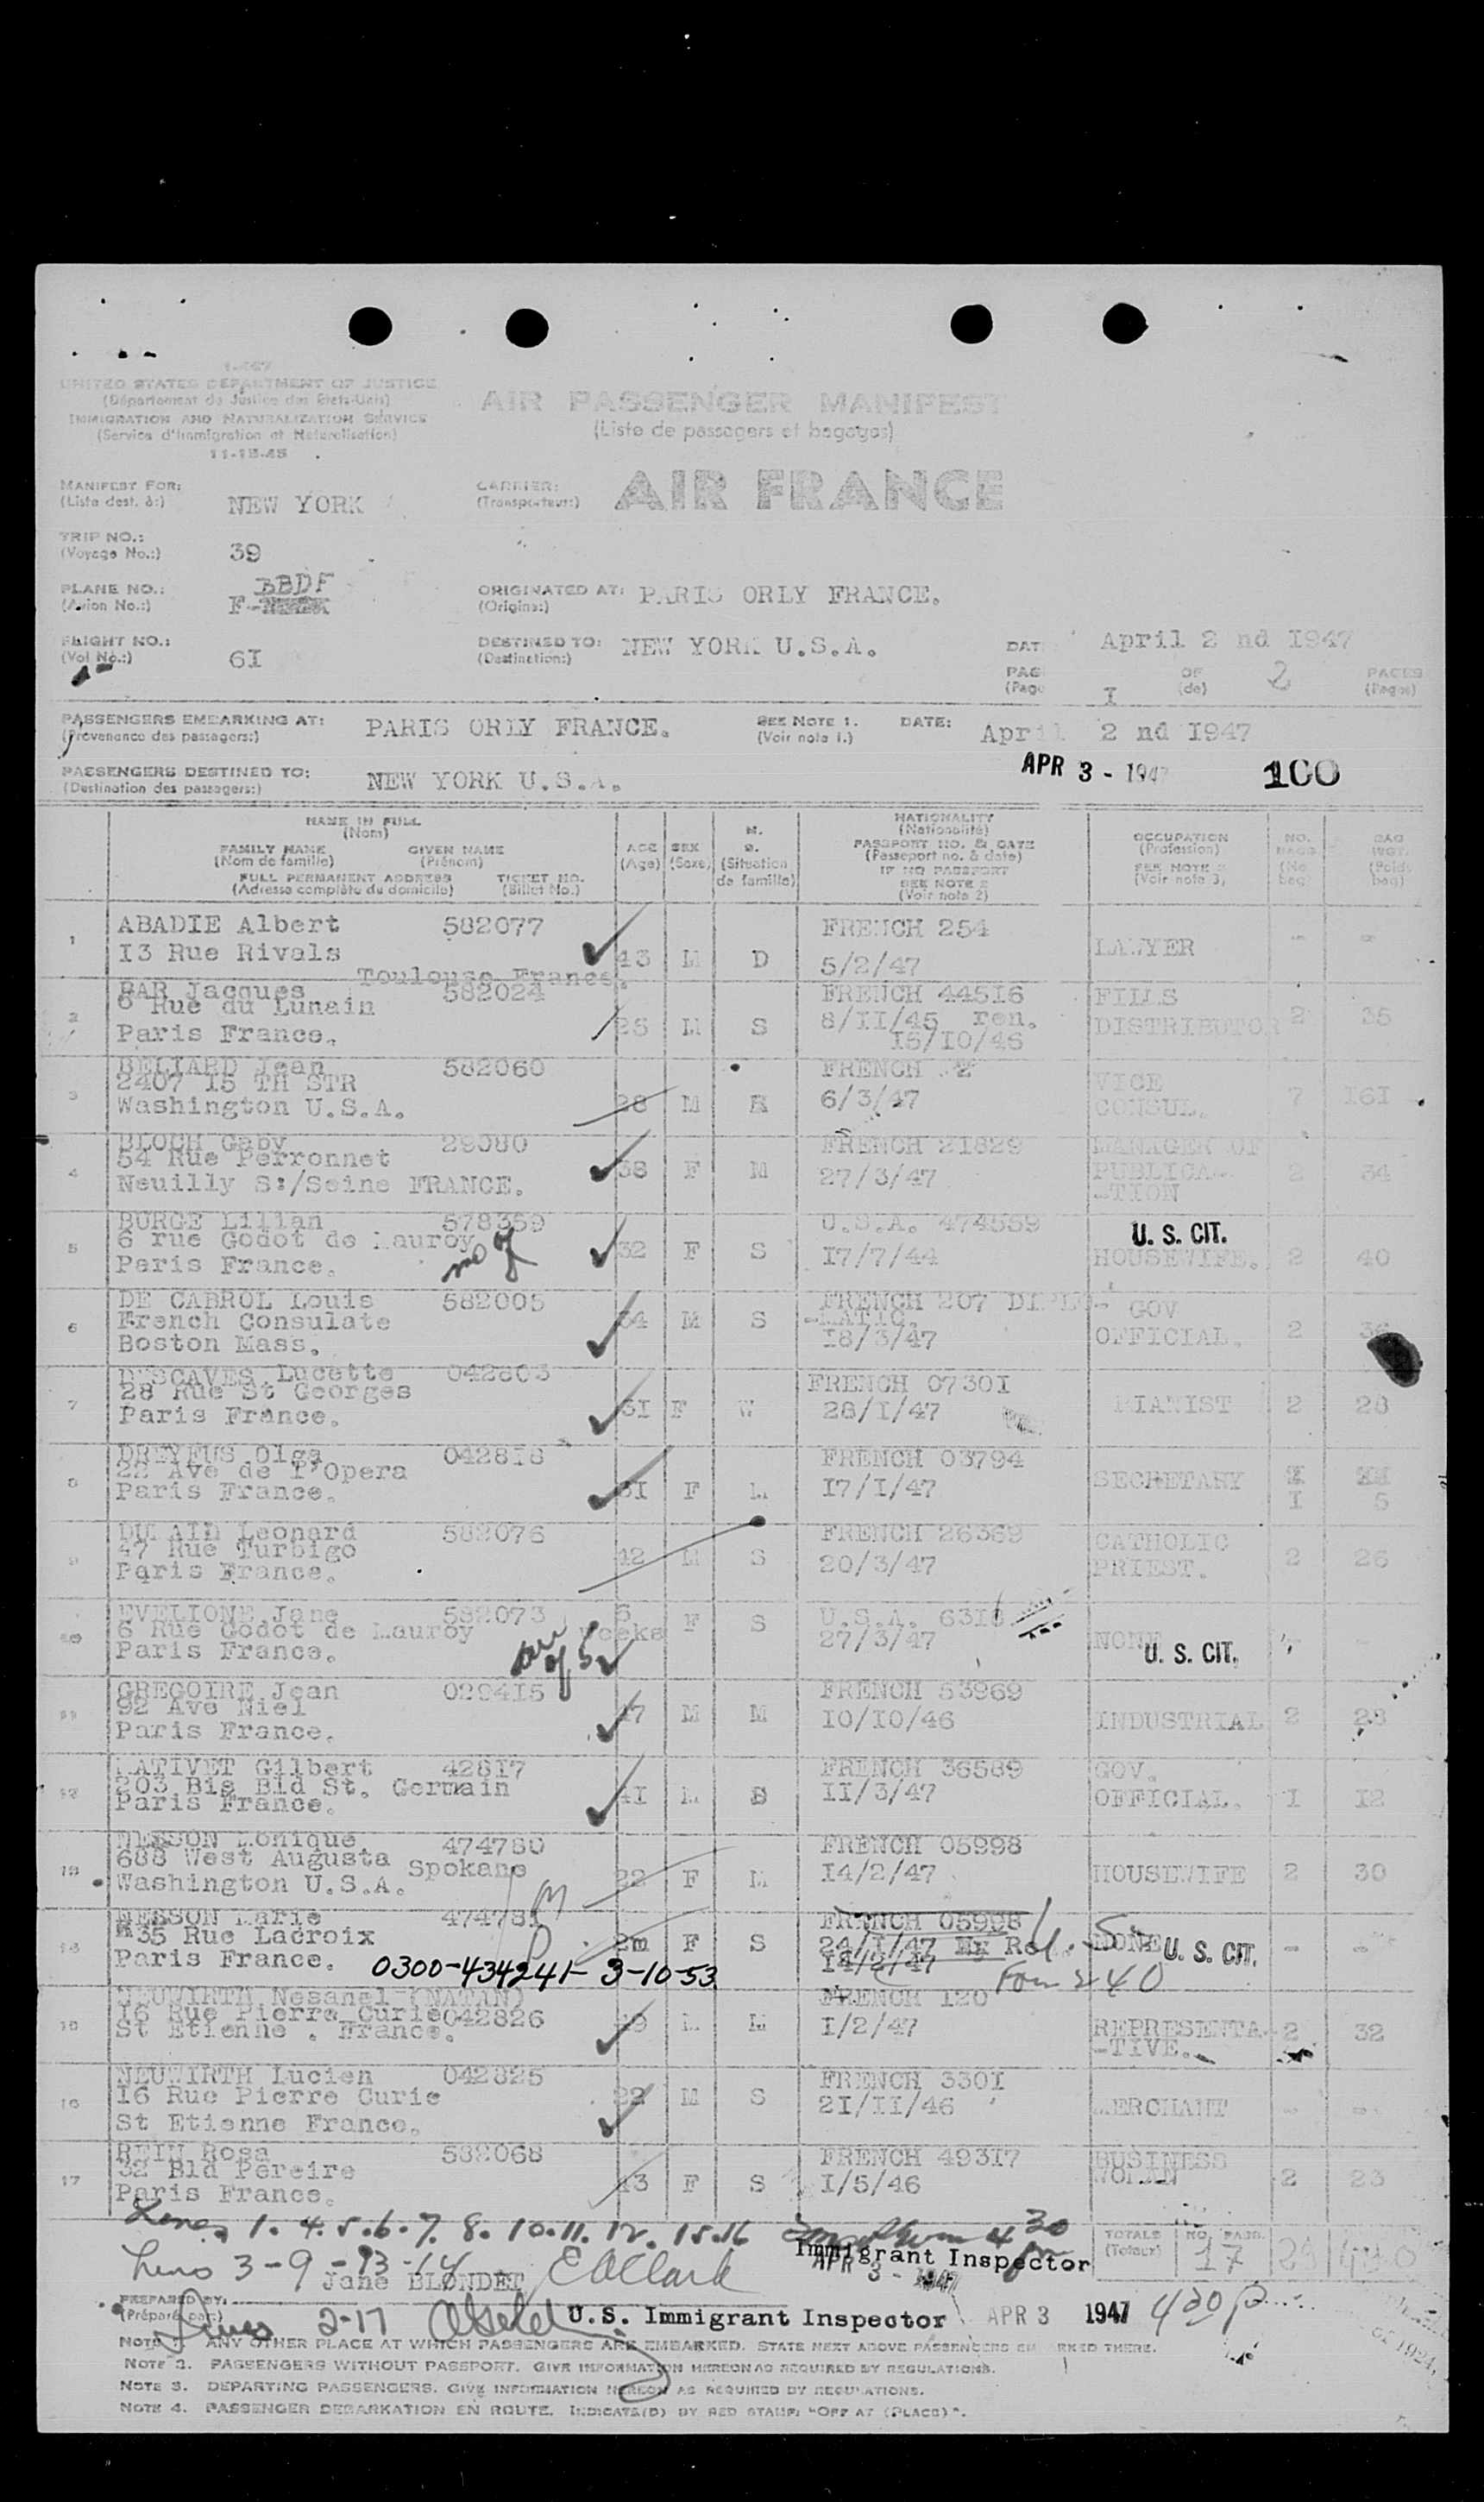 1-467
UNITED STATES DEPARTMENT OF JUSTICE
(Département de Justice des Etats-Unis)
IMMIGRATION AND NATURALIZATION SERVICE
(Service d'Immigration et Naturalisation)
11-15-45
AIR PASSENGER MANIFEST
(Liste de passagers et bagages)
MANIFEST FOR:
(Liste dest. à:)
NEW YORK
CARRIER:
(Transporteur:)
AIR FRANCE
TRIP NO.:
(Voyage No.:)
39
PLANE NO.:
(Avion No.:)
BBDF
F-
ORIGINATED AT:
(Origine:)
PARIS ORLY FRANCE.
FLIGHT NO.:
(Vol No.:)
6I
DESTINED TO:
(Destination:)
NEW YORK U.S.A.
DAT
April 2 nd I947
PAG
(Page
I
OF
(de)
2
PAGES
(Pages)
PASSENGERS EMBARKING AT:
(Provenance des passagers:)
PARIS ORLY FRANCE.
SEE NOTE 1.
(Voir note 1.)
DATE:
April 2 nd I947
PASSENGERS DESTINED TO:
(Destination des passagers:)
NEW YORK U.S.A.
APR 3 - 1947
100
NAME IN FULL
(Nom)
FAMILY NAME GIVEN NAME
(Nom de famille) (Prénom)
FULL PERMANENT ADDRESS TICKET NO.
(Adresse complète du domicile) (Billet No.)
AGE
(Age)
SEX
(Sexe)
M.
S.
(Situation
de famille)
NATIONALITY
(Nationalité)
PASSPORT NO. & DATE
(Passeport no. & date)
IF NO PASSPORT
SEE NOTE 2
(Voir note 2)
OCCUPATION
(Profession)
SEE NOTE 3
(Voir note 3)
NO.
BAGS
(No
bag)
BAG
WGT.
(Poids
bag)
1 ABADIE Albert 582077 FRENCH 254
I3 Rue Rivals 43 M D 5/2/47 LAWYER - -
Toulouse France.
2 BAR Jacques 582024 FRENCH 445I6 FILMS
6 Rue du Lunain 8/II/45 ren. DISTRIBUTOR 2 35
Paris France. 26 M S I5/I0/46
3 BELIARD Jean 582060 FRENCH
2407 I5 TH STR VICE
Washington U.S.A. 28 M 6/3/47 CONSUL. 7 I6I
4 BLOCH Gaby 29080 FRENCH 2I829 MANAGER OF
54 Rue Perronnet 38 F M 27/3/47 PUBLICA- 2 34
Neuilly S:/Seine FRANCE. -TION
5 BURGE Lilian 578359 U.S.A. 474559 U. S. CIT.
6 rue Godot de Mauroy 32 F S I7/7/44 HOUSEWIFE. 2 40
Paris France.
6 DE CABROL Louis 582005 FRENCH 207 DIPLO-
French Consulate 34 M S -MATIC. GOV
Boston Mass. I8/3/47 OFFICIAL. 2 36
7 DESCAVES Lucette 042803 FRENCH 0730I
28 Rue St Georges 3I F W 28/I/47 PIANIST 2 28
Paris France.
8 DREYFUS Olga 0428I8 FRENCH 03794
22 Ave de l'Opera SECRETARY
Paris France. 3I F M I7/I/47 I 5
9 Leonard 582076 FRENCH 26369 CATHOLIC
47 Rue Turbigo 42 M S 20/3/47 PRIEST. 2 26
Paris France.
10 EVELIONE Jane 582073 6 F S U.S.A.
6 Rue Godot de Mauroy weeks 27/3/47 NONE - -
Paris France. U. S. CIT.
11 GREGOIRE Jean 0294I5 FRENCH 53969
92 Ave Niel 47 M M I0/I0/46 INDUSTRIAL 2 28
Paris France.
12 MATIVET Gilbert 428I7 FRENCH 36589 GOV.
203 Bis Bld St. Germain 4I M II/3/47 OFFICIAL. I I2
Paris France.
13 MESSON Monique 474780 FRENCH 05998
688 West Augusta Spokane 22 F M I4/2/47 HOUSEWIFE 2 30
Washington U.S.A.
MESSON Marie 47478I FRENCH 05998
35 Rue Lacroix 2m F S 24/I/47 NONE U. S. CIT. - -
Paris France. I4/2/47
0300-434241- 3-10-53 Form 240
15 NEUWIRTH Nesanel (NATAN) FRENCH I20
I6 Rue Pierre Curie 042826 49 M M I/2/47 REPRESENTA- 2 32
St Etienne . France. -TIVE.
16 NEUWIRTH Lucien 042825 FRENCH 330I
I6 Rue Pierre Curie 22 M S 2I/II/46 MERCHANT - -
St Etienne France.
17 REIH Rosa 582068 FRENCH 493I7 BUSINESS
32 Bld Pereire 43 F S I/5/46 WOMAN 2 23
Paris France.
Lines 1. 4. 5. 6. 7. 8. 10. 11. 12. 15. 16
Immigrant Inspector
TOTALS
(Totaux)
NO. PASS.
17
Lines 3-9-13-14
Jane BLONDET
E A Clark
APR 3 - 1947
PREPARED BY:
(Préparé par:)
Lines 2-17
U.S. Immigrant Inspector APR 3 1947 430 P
NOTE 1. ANY OTHER PLACE AT WHICH PASSENGERS ARE EMBARKED. STATE NEXT ABOVE PASSENGERS EMBARKED THERE.
NOTE 2. PASSENGERS WITHOUT PASSPORT. GIVE INFORMATION HEREON AS REQUIRED BY REGULATIONS.
NOTE 3. DEPARTING PASSENGERS. GIVE INFORMATION HEREON AS REQUIRED BY REGULATIONS.
NOTE 4. PASSENGER DEBARKATION EN ROUTE. INDICATE(D) BY RED STAMP: "OFF AT (PLACE)".